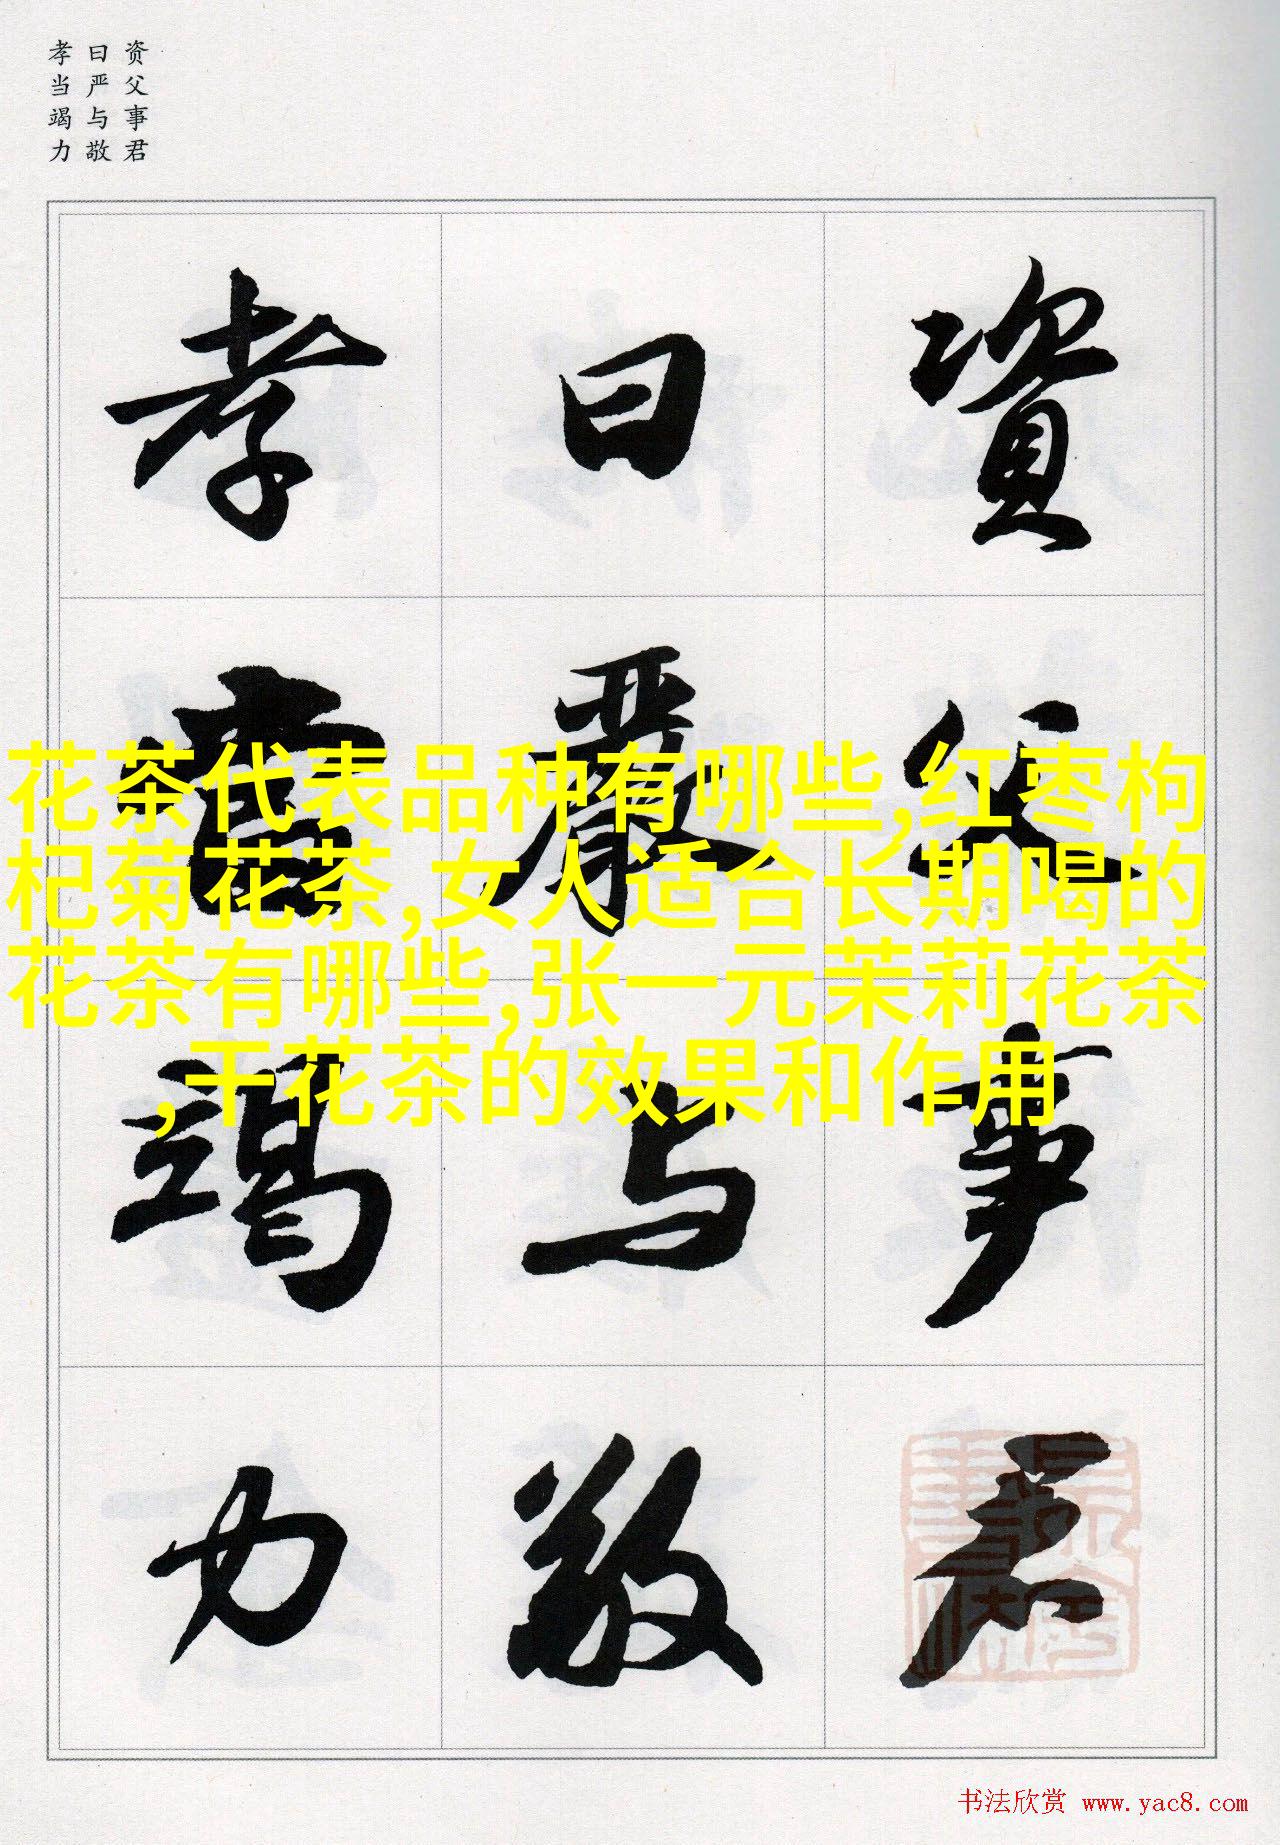 资父事君
曰严与敬
孝当竭力
資父事君
曰嚴与敬
孝當竭力
花茶代表品种有哪些,红枣枸
杞菊花茶,女人适合长期喝的
花茶有哪些,张一元茉莉花茶
,干花茶的效果和作用
书法欣赏 www.yac8.com